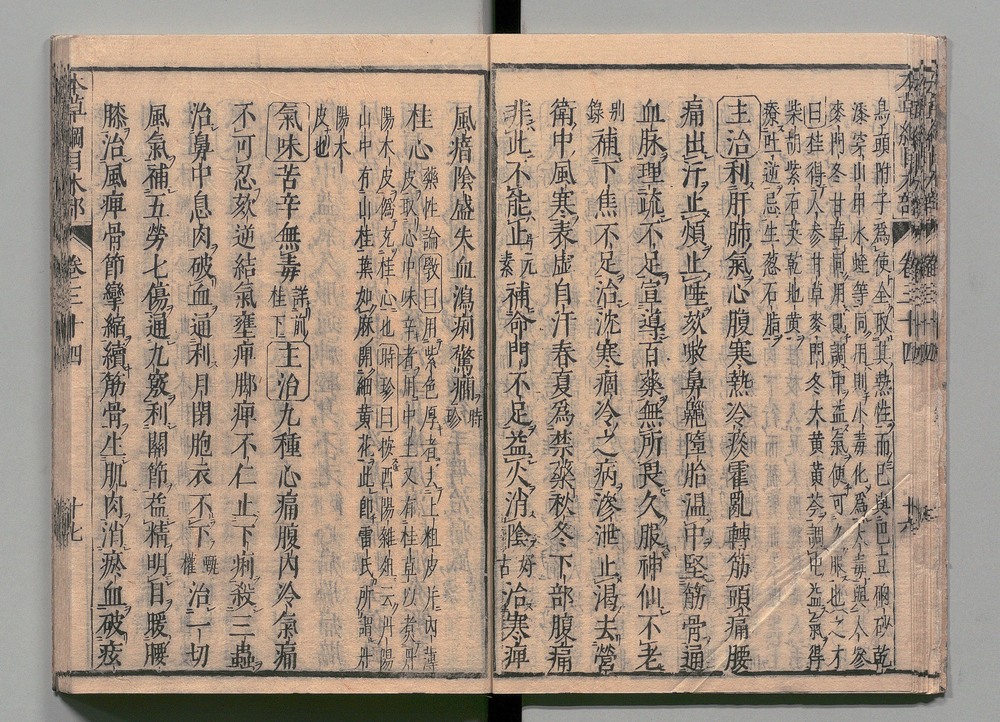 烏頭附子爲使全取其熱性而已與巴豆硇砂乾
漆穿山甲水蛭等同用則小毒化爲大毒與人參
麥門冬甘草同用則調中益氣便可久服也之才
曰桂得人參甘草麥門冬大黃黃芩調中益氣得
柴胡紫石英乾地黃
療吐逆忌生葱石脂
主治利肝肺氣心腹寒熱冷痰霍亂轉筋頭痛腰
痛出汗止煩止唾欬嗽鼻齆墮胎温中堅筋骨通
血脉理疏不足宣導百藥無所畏久服神仙不老
別錄補下焦不足治沈寒痼冷之病滲泄止渴去營
衛中風寒表虛自汗春夏為禁藥秋冬下部腹痛
非此不能止元素補命門不足益火消陰好古治寒痺
風瘖陰盛失血瀉痢驚癇時珍
桂心藥性論斆曰用紫色厚者去上粗皮并內薄
皮取心中味辛者用中土又有桂草以煮丹
陽木皮偽充桂心也時珍曰按酉陽雜俎云丹陽
山中有山桂葉如麻開細黃花此即雷氏所謂丹
陽木
皮也
氣味苦辛無毒詳前桂下主治九種心痛腹內冷氣痛
不可忍欬逆結氣壅痺脚痺不仁止下痢殺三蟲
治鼻中息肉破血通利月閉胞衣不下甄權治一切
風氣補五勞七傷通九竅利關節益精明目暖腰
膝治風痺骨節攣縮續筋骨生肌肉消瘀血破痃
本草綱目木部
卷三十四
十七
卷三十四